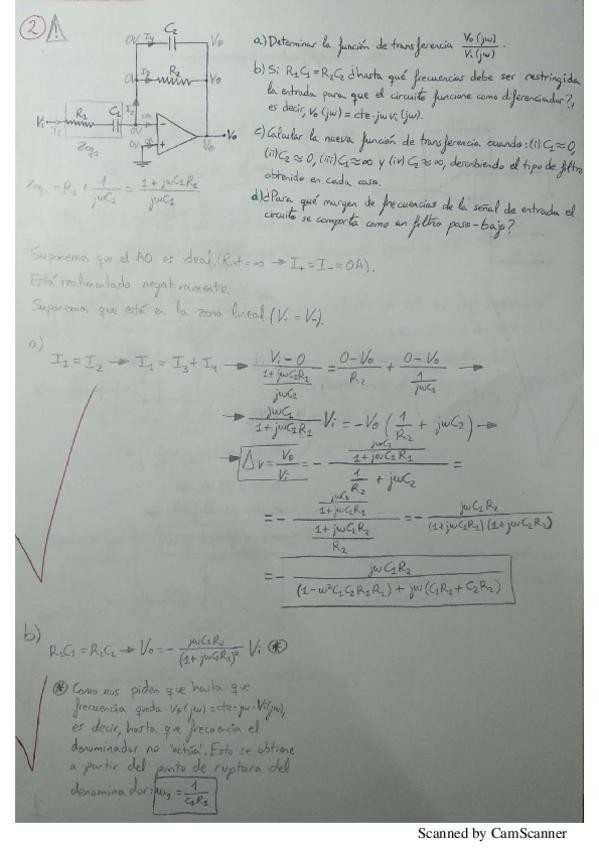 2
a) Determinar la función de transferencia Vo(jω)/Vi(jω).
b) Si R1C1=R2C2 ¿hasta qué frecuencias debe ser restringida
la entrada para que el circuito funcione como diferenciador?,
es decir, Vo(jω)=cte·jω Vi(jω).
c) Calcular la nueva función de transferencia cuando: (i) C1≈0,
(ii) C2≈0, (iii) C1≈∞ y (iv) C2≈∞, describiendo el tipo de filtro
obtenido en cada caso.
d) ¿Para qué margen de frecuencias de la señal de entrada el
circuito se comporta como un filtro paso-bajo?
0V I4 C2 Vo
0V I3 R2
Vi R1 C1 0V Vo
0V Vo
Zeq1
Zeq1 = R1 + 1/jωC1 = (1+jωC1R1)/jωC1
Suponemos que el AO es ideal (R+=∞ → I+=I-=0A).
Está realimentado negativamente.
Suponemos que está en la zona lineal (V+=V-).
a)
I1=I2 → I1=I3+I4 → (Vi-0)/((1+jωC1R1)/jωC1) = (0-Vo)/R2 + (0-Vo)/(1/jωC2) →
→ jωC1/(1+jωC1R1) Vi = -Vo (1/R2 + jωC2) →
→ Av = Vo/Vi = - (jωC1/(1+jωC1R1))/(1/R2 + jωC2) =
= - (jωC1/(1+jωC1R1))/((1+jωC2R2)/R2) = - jωC1R2/((1+jωC1R1)(1+jωC2R2))
= - jωC1R2/((1-ω²C1C2R2R1)+jω(C1R1+C2R2))
b)
R1C1=R2C2 → Vo = - jωC1R2/(1+jωC1R1)² Vi ⊛
⊛ Como nos piden que hasta que
frecuencia queda Vo(jω)=cte·jω·Vi(jω),
es decir, hasta que frecuencia el
denominador no "actúa". Esto se obtiene
a partir del punto de ruptura del
denominador: ω1 = 1/C1R1
Scanned by CamScanner